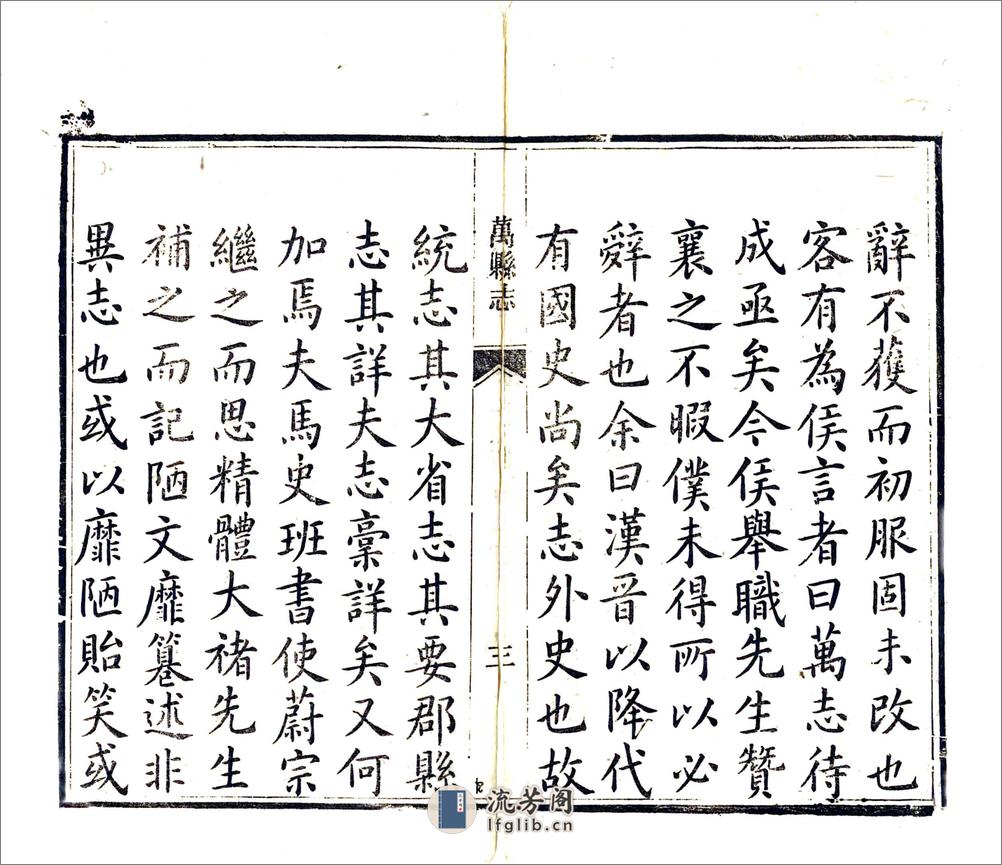 辭不獲而初服固未改也
客有為侯言者曰萬志待
成亟矣今侯舉職先生贊
襄之不暇僕未得所以必
辭者也余曰漢晉以降代
有國史尚矣志外史也故
萬縣志
三
統志其大省志其要郡縣
志其詳夫志稾詳矣又何
加焉夫馬史班書使蔚宗
繼之而思精體大褚先生
補之而記陋文靡籑述非
異志也或以靡陋貽笑或
流芳阁
lfglib.cn